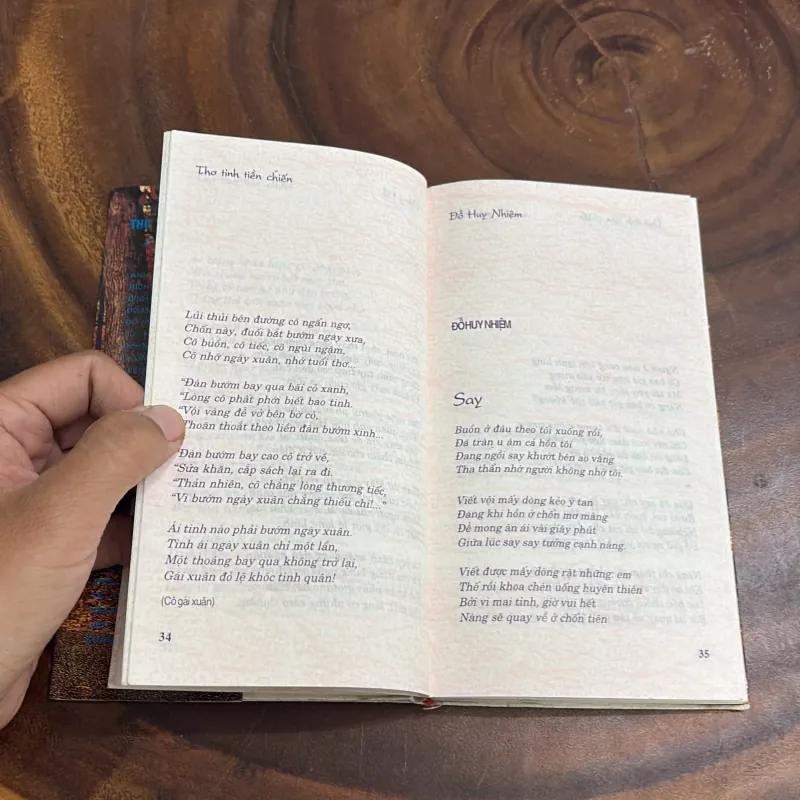 Thơ tình tiền chiến
Lủi thủi bên đường cô ngẩn ngơ,
Chốn này, đuổi bắt bướm ngày xưa,
Cô buồn, cô tiếc, cô ngùi ngậm,
Cô nhớ ngày xuân, nhớ tuổi thơ...
"Đàn bướm bay qua bãi cỏ xanh,
"Lòng cô phát phới biết bao tình.
"Vội vàng để vở bên bờ cỏ,
"Thoăn thoắt theo liền đàn bướm xinh...
"Đàn bướm bay cao cô trở về,
"Sửa khăn, cắp sách lại ra đi.
"Thản nhiên, cô chẳng lòng thương tiếc,
"Vì bướm ngày xuân chẳng thiếu chi!..."
Ái tình nào phải bướm ngày xuân.
Tình ái ngày xuân chỉ một lần,
Một thoáng bay qua không trở lại,
Gái xuân đỏ lệ khóc tình quân!
(Cô gái xuân)
34
Đỗ Huy Nhiệm
ĐỖ HUY NHIỆM
Say
Buồn ở đâu theo tôi xuống rồi,
Đã tràn u ám cả hồn tôi
Đang ngồi say khướt bên ao vắng
Tha thẩn nhớ người không nhớ tôi.
Viết vội mấy dòng kẻo ý tan
Đang khi hồn ở chốn mơ màng
Để mong ân ái vài giây phút
Giữa lúc say say tưởng cạnh nàng.
Viết được mấy dòng rặt những: em
Thế rồi khoa chén uống huyên thiên
Bởi vì mai tỉnh, giờ vui hết
Nàng sẽ quay về ở chốn tiên
35